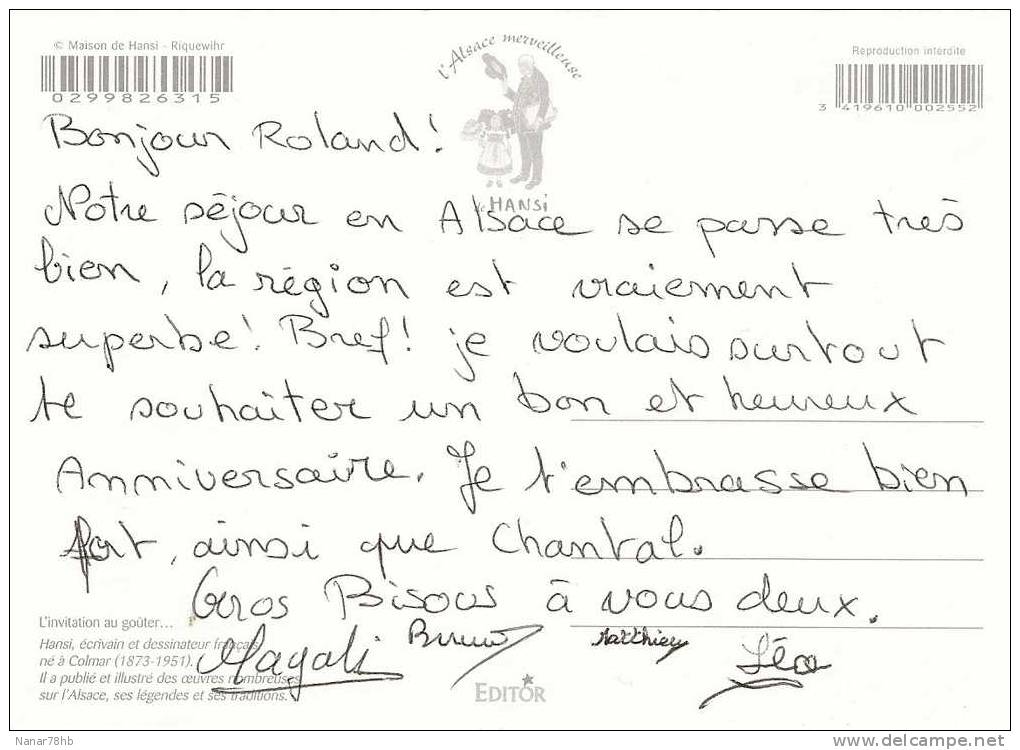 © Maison de Hansi - Riquewihr
0299826315
l'Alsace merveilleuse
de HANSi
Reproduction interdite
3 419610 002552
Bonjour Roland!
Notre séjour en Alsace se passe très
bien, la région est vraiement
superbe! Bref! je voulais surtout
te souhaiter un bon et heureux
Anniversaire. Je t'embrasse bien
fort, ainsi que Chantal.
Gros Bisous à vous deux.
Magali Bruno Matthieu Léa
L'invitation au goûter...
Hansi, écrivain et dessinateur français,
né à Colmar (1873-1951).
Il a publié et illustré des œuvres nombreuses
sur l'Alsace, ses légendes et ses traditions.
EDITOR
Nanar78hb
delcampe.net